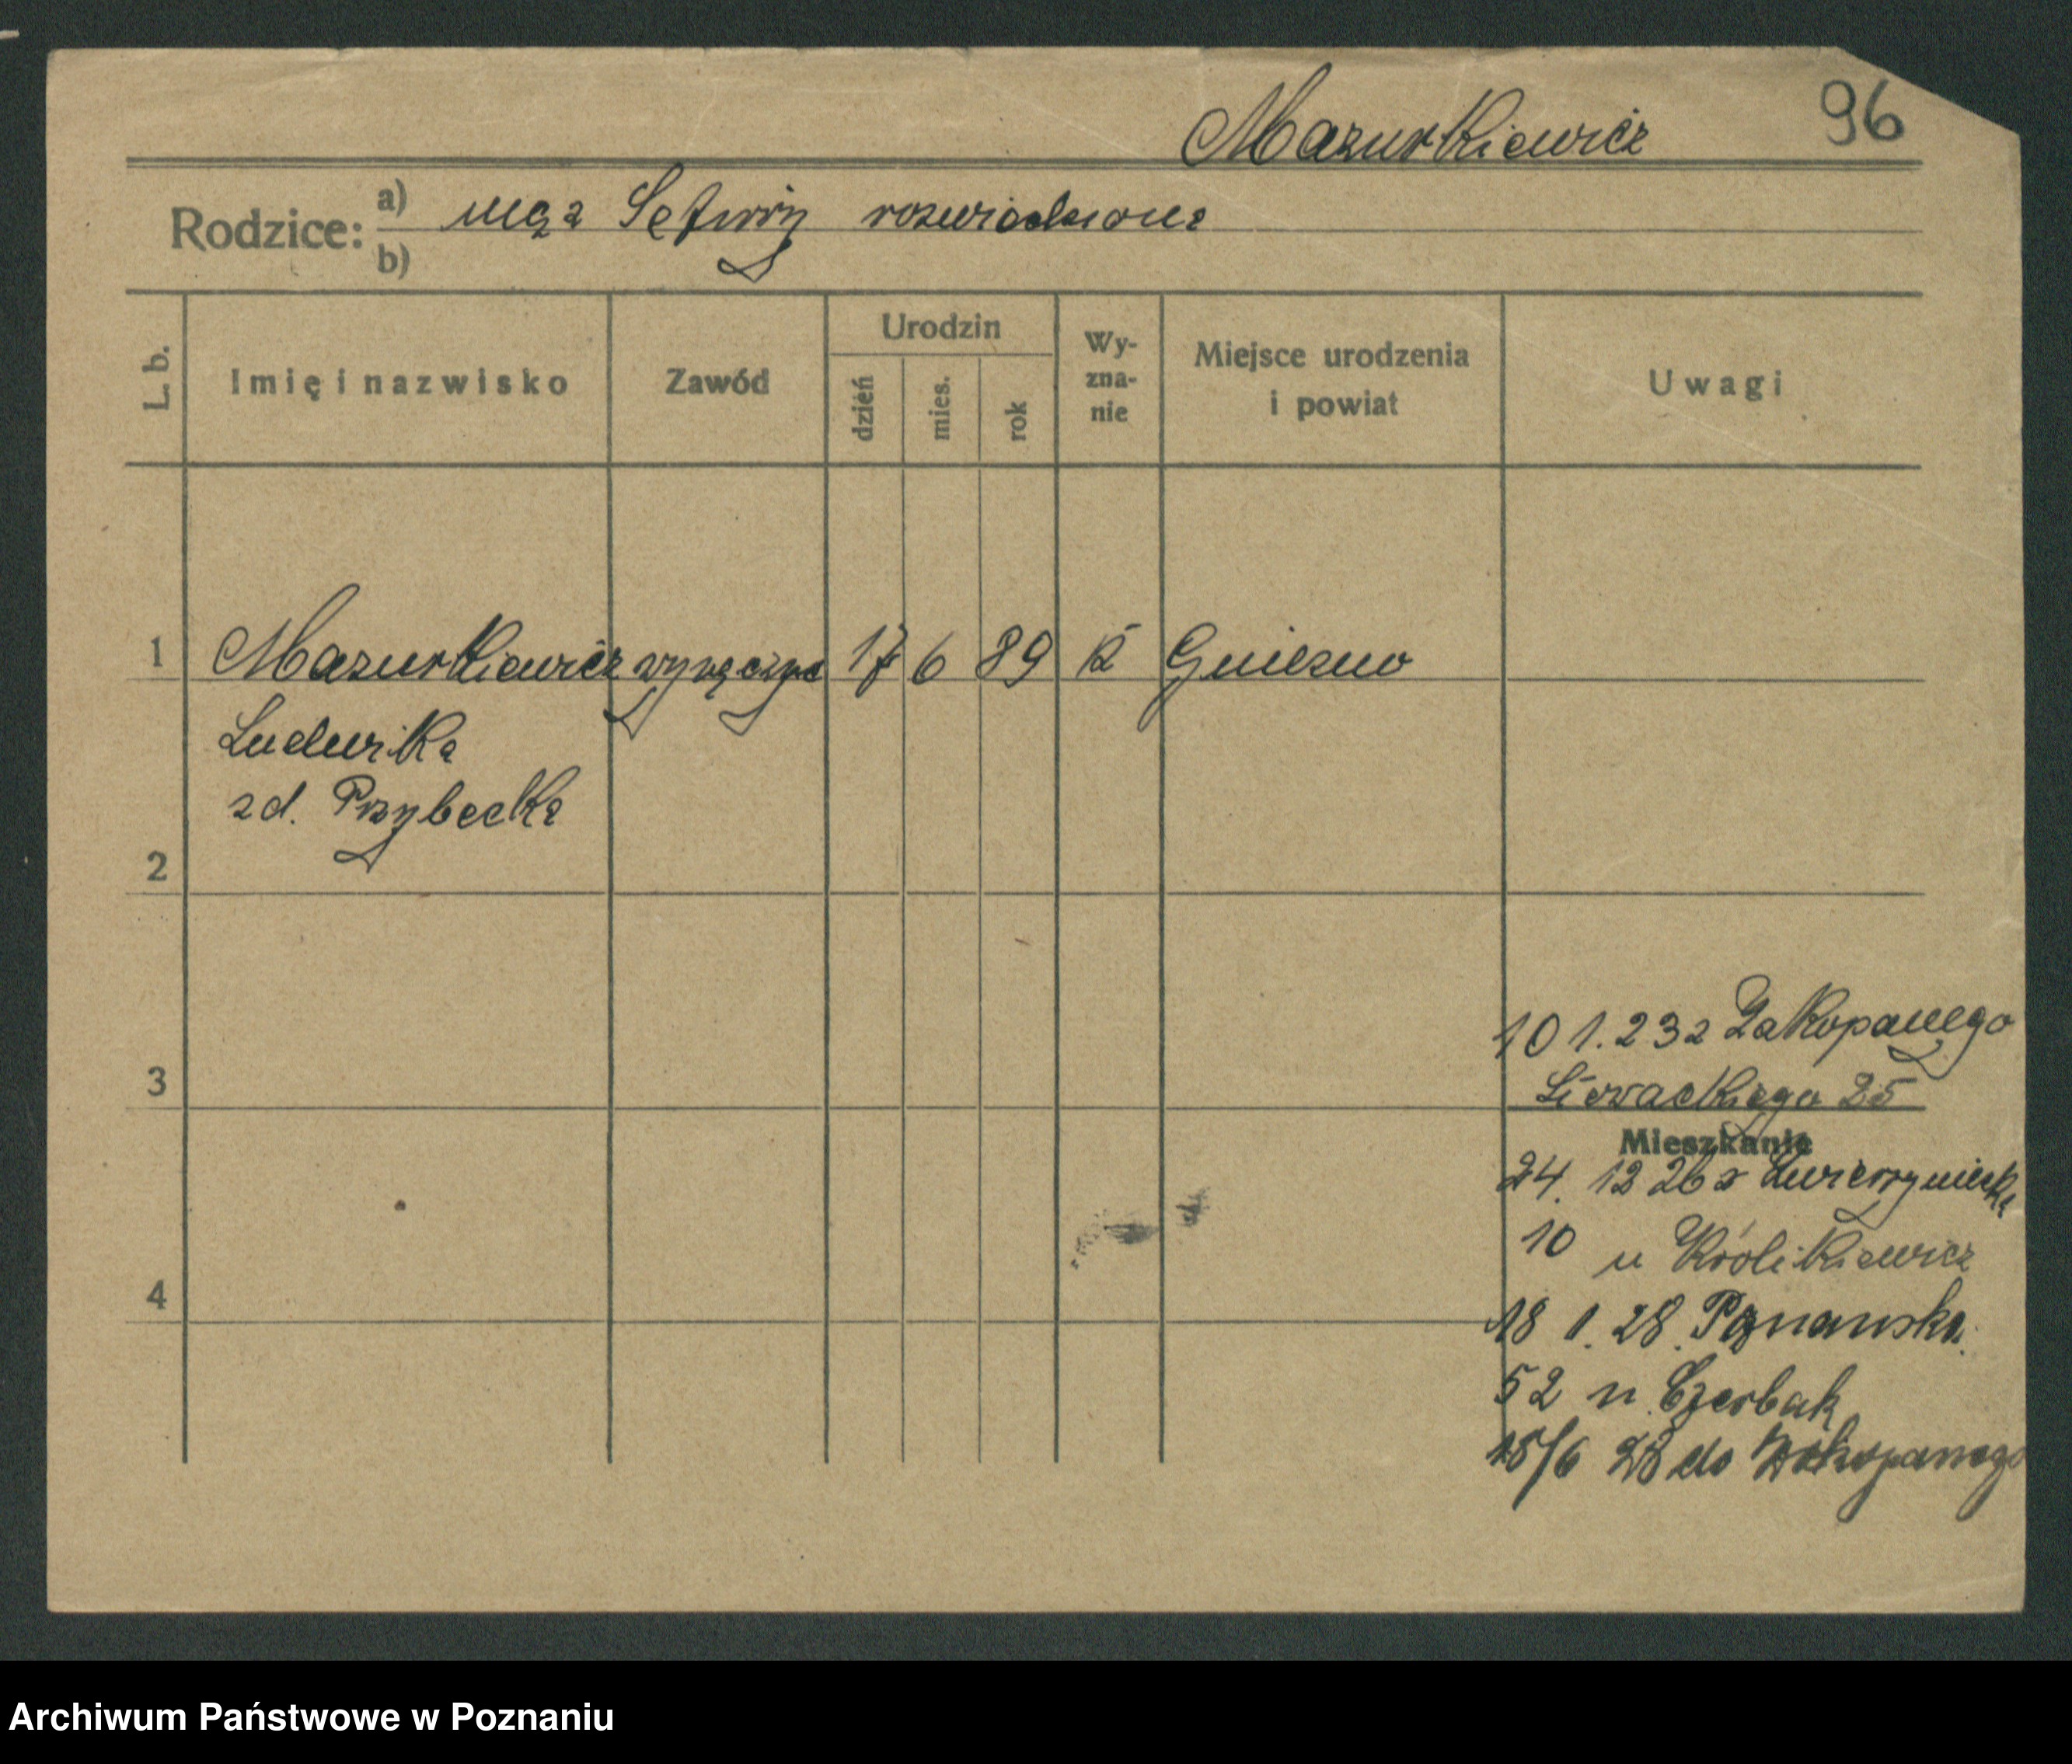 Mazurkiewicz 96
Rodzice: a) męża rozwiedziona
b)
L. b. Imię i nazwisko Zawód Urodzin dzień mies. rok Wy-zna-nie Miejsce urodzenia i powiat Uwagi
1 Mazurkiewicz wyręczyc 17 6 89 k Gniezno
Ludwika
zd. Przybecka
2
10 1. 23 z Zakopanego
3 Słowackiego 25
Mieszkanie
24. 12 26 z Zwierzyniecka
10 u Królikiewicz
4 18 1. 28. Poznańska
52 u Czerbak
15/6 28 do Zakopanego
Archiwum Państwowe w Poznaniu